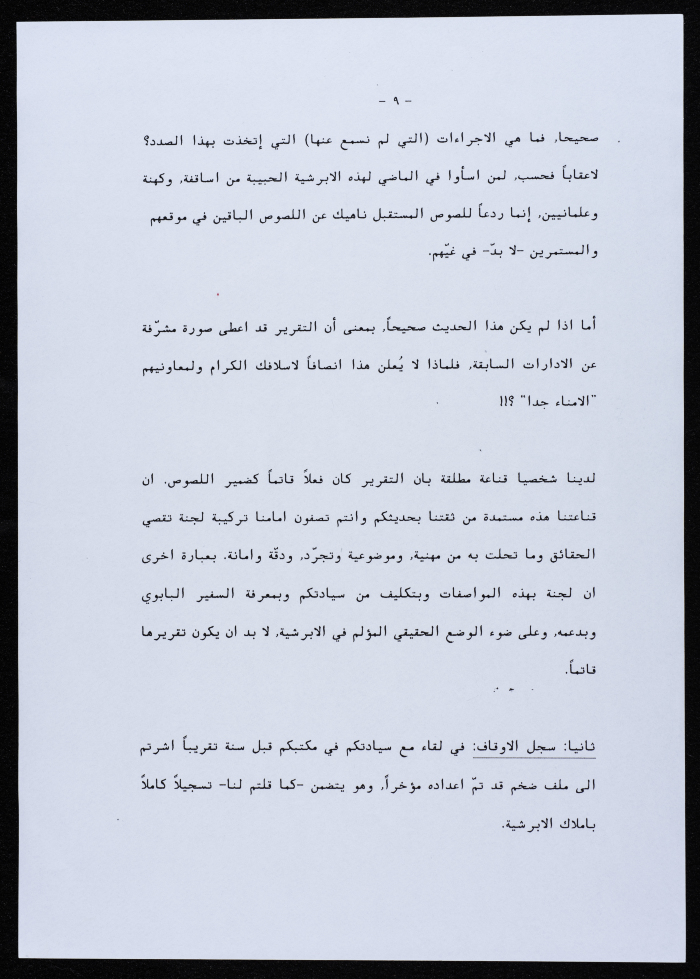 - ٩ -
صحيحا, فما هي الاجراءات (التي لم نسمع عنها) التي إتخذت بهذا الصدد؟
لاعقاباً فحسب, لمن اسأوا في الماضي لهذه الابرشية الحبيبة من اساقفة, وكهنة
وعلمانيين, إنما ردعاً للصوص المستقبل ناهيك عن اللصوص الباقين في موقعهم
والمستمرين -لا بدّ- في غيّهم.
أما اذا لم يكن هذا الحديث صحيحاً, بمعنى أن التقرير قد اعطى صورة مشرّفة
عن الادارات السابقة, فلماذا لا يُعلن هذا انصافاً لاسلافك الكرام ولمعاونيهم
"الامناء جدا" ؟!!
لدينا شخصيا قناعة مطلقة بان التقرير كان فعلاً قاتماً كضمير اللصوص. ان
قناعتنا هذه مستمدة من ثقتنا بحديثكم وانتم تصفون امامنا تركيبة لجنة تقصي
الحقائق وما تحلت به من مهنية, وموضوعية وتجرّد, ودقّة وامانة. بعبارة اخرى
ان لجنة بهذه المواصفات وبتكليف من سيادتكم وبمعرفة السفير البابوي
وبدعمه, وعلى ضوء الوضع الحقيقي المؤلم في الابرشية, لا بد ان يكون تقريرها
قاتماً.
ثانيا: سجل الاوقاف: في لقاء مع سيادتكم في مكتبكم قبل سنة تقريباً اشرتم
الى ملف ضخم قد تمّ اعداده مؤخراً, وهو يتضمن -كما قلتم لنا- تسجيلاً كاملاً
باملاك الابرشية.